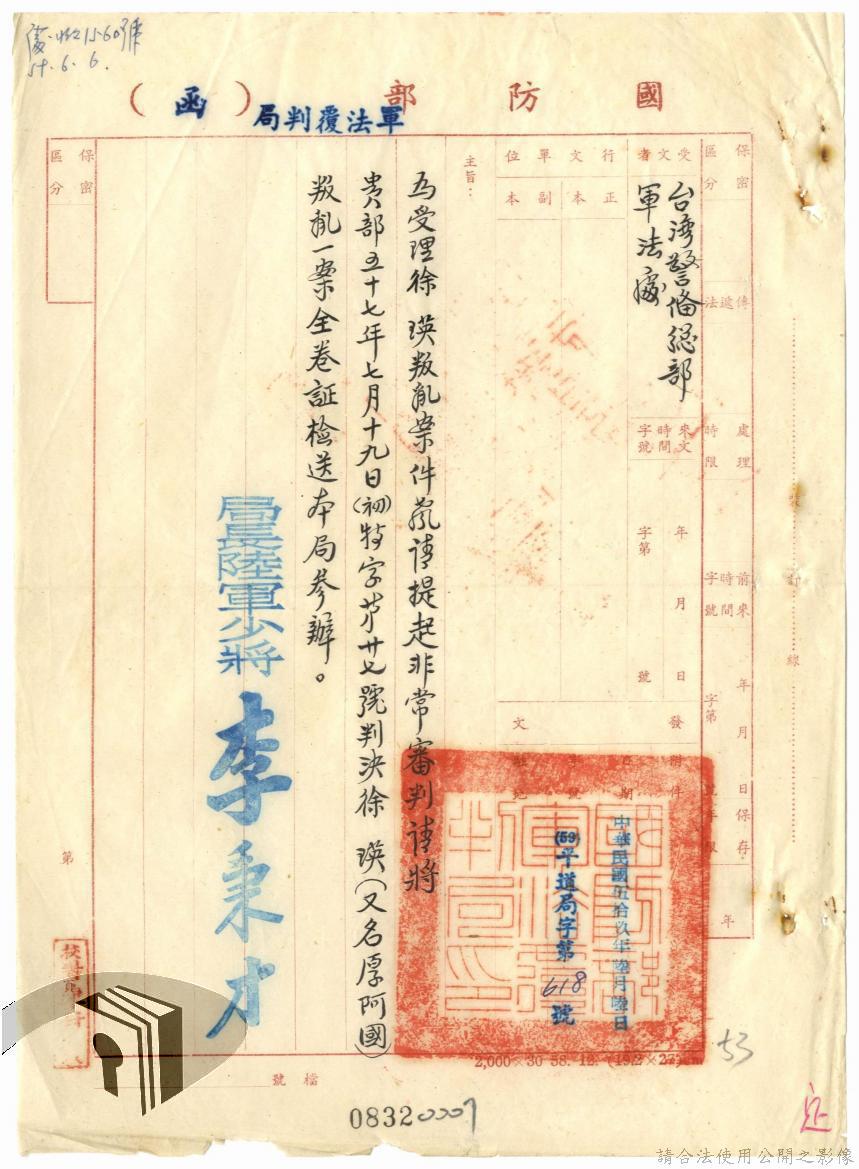 59.6.6.
國防部
軍法覆判局
(函)
保密
區分
傳遞
法
處理
時限
前來
時間
字號
年月日
字第
保存
年
受文者
台湾警备總部
軍法處
來文
時間
字號
年月日
字第
號
行文單位
正本
副本
發文
附件
日期
中華民國伍拾玖年陸月陸日
(59)平道局字第618號
國防部軍法覆判局印
主旨：
為受理徐 瑛叛亂案件聲請提起非常審判請將
貴部五十七年七月十九日(初)特字第廿七號判決徐 瑛(又名厚阿國)
叛亂一案全卷証檢送本局參辦。
局長陸軍少將
李秉才
保密
區分
第
裝訂線
檔號
2,000×30 58. 12. (19.2×27)
53
08320007
請合法使用公開之影像